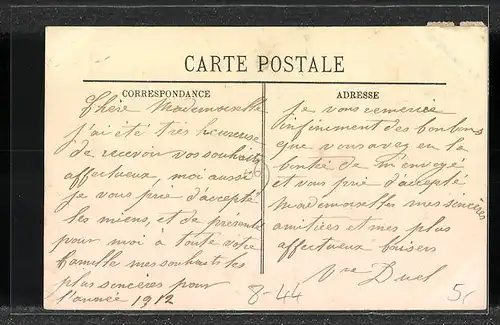 CARTE POSTALE
CORRESPONDANCE
Chère Mademoiselle
j'ai été très heureuse
de recevoir vos souhaits
affectueux, moi aussi
je vous prie d'accepté
les miens, et de présenté
pour moi à toute votre
famille mes souhaits les
plus sincères pour
l'année 1912
ADRESSE
je vous remercie
infiniment des bonbons
que vous avez eu la
bonté de m'envoyé
et vous prie d'accepté
Mademoiselles mes sincères
amitiées et mes plus
affectueux baisers
Vve Duel
8-44
5,-